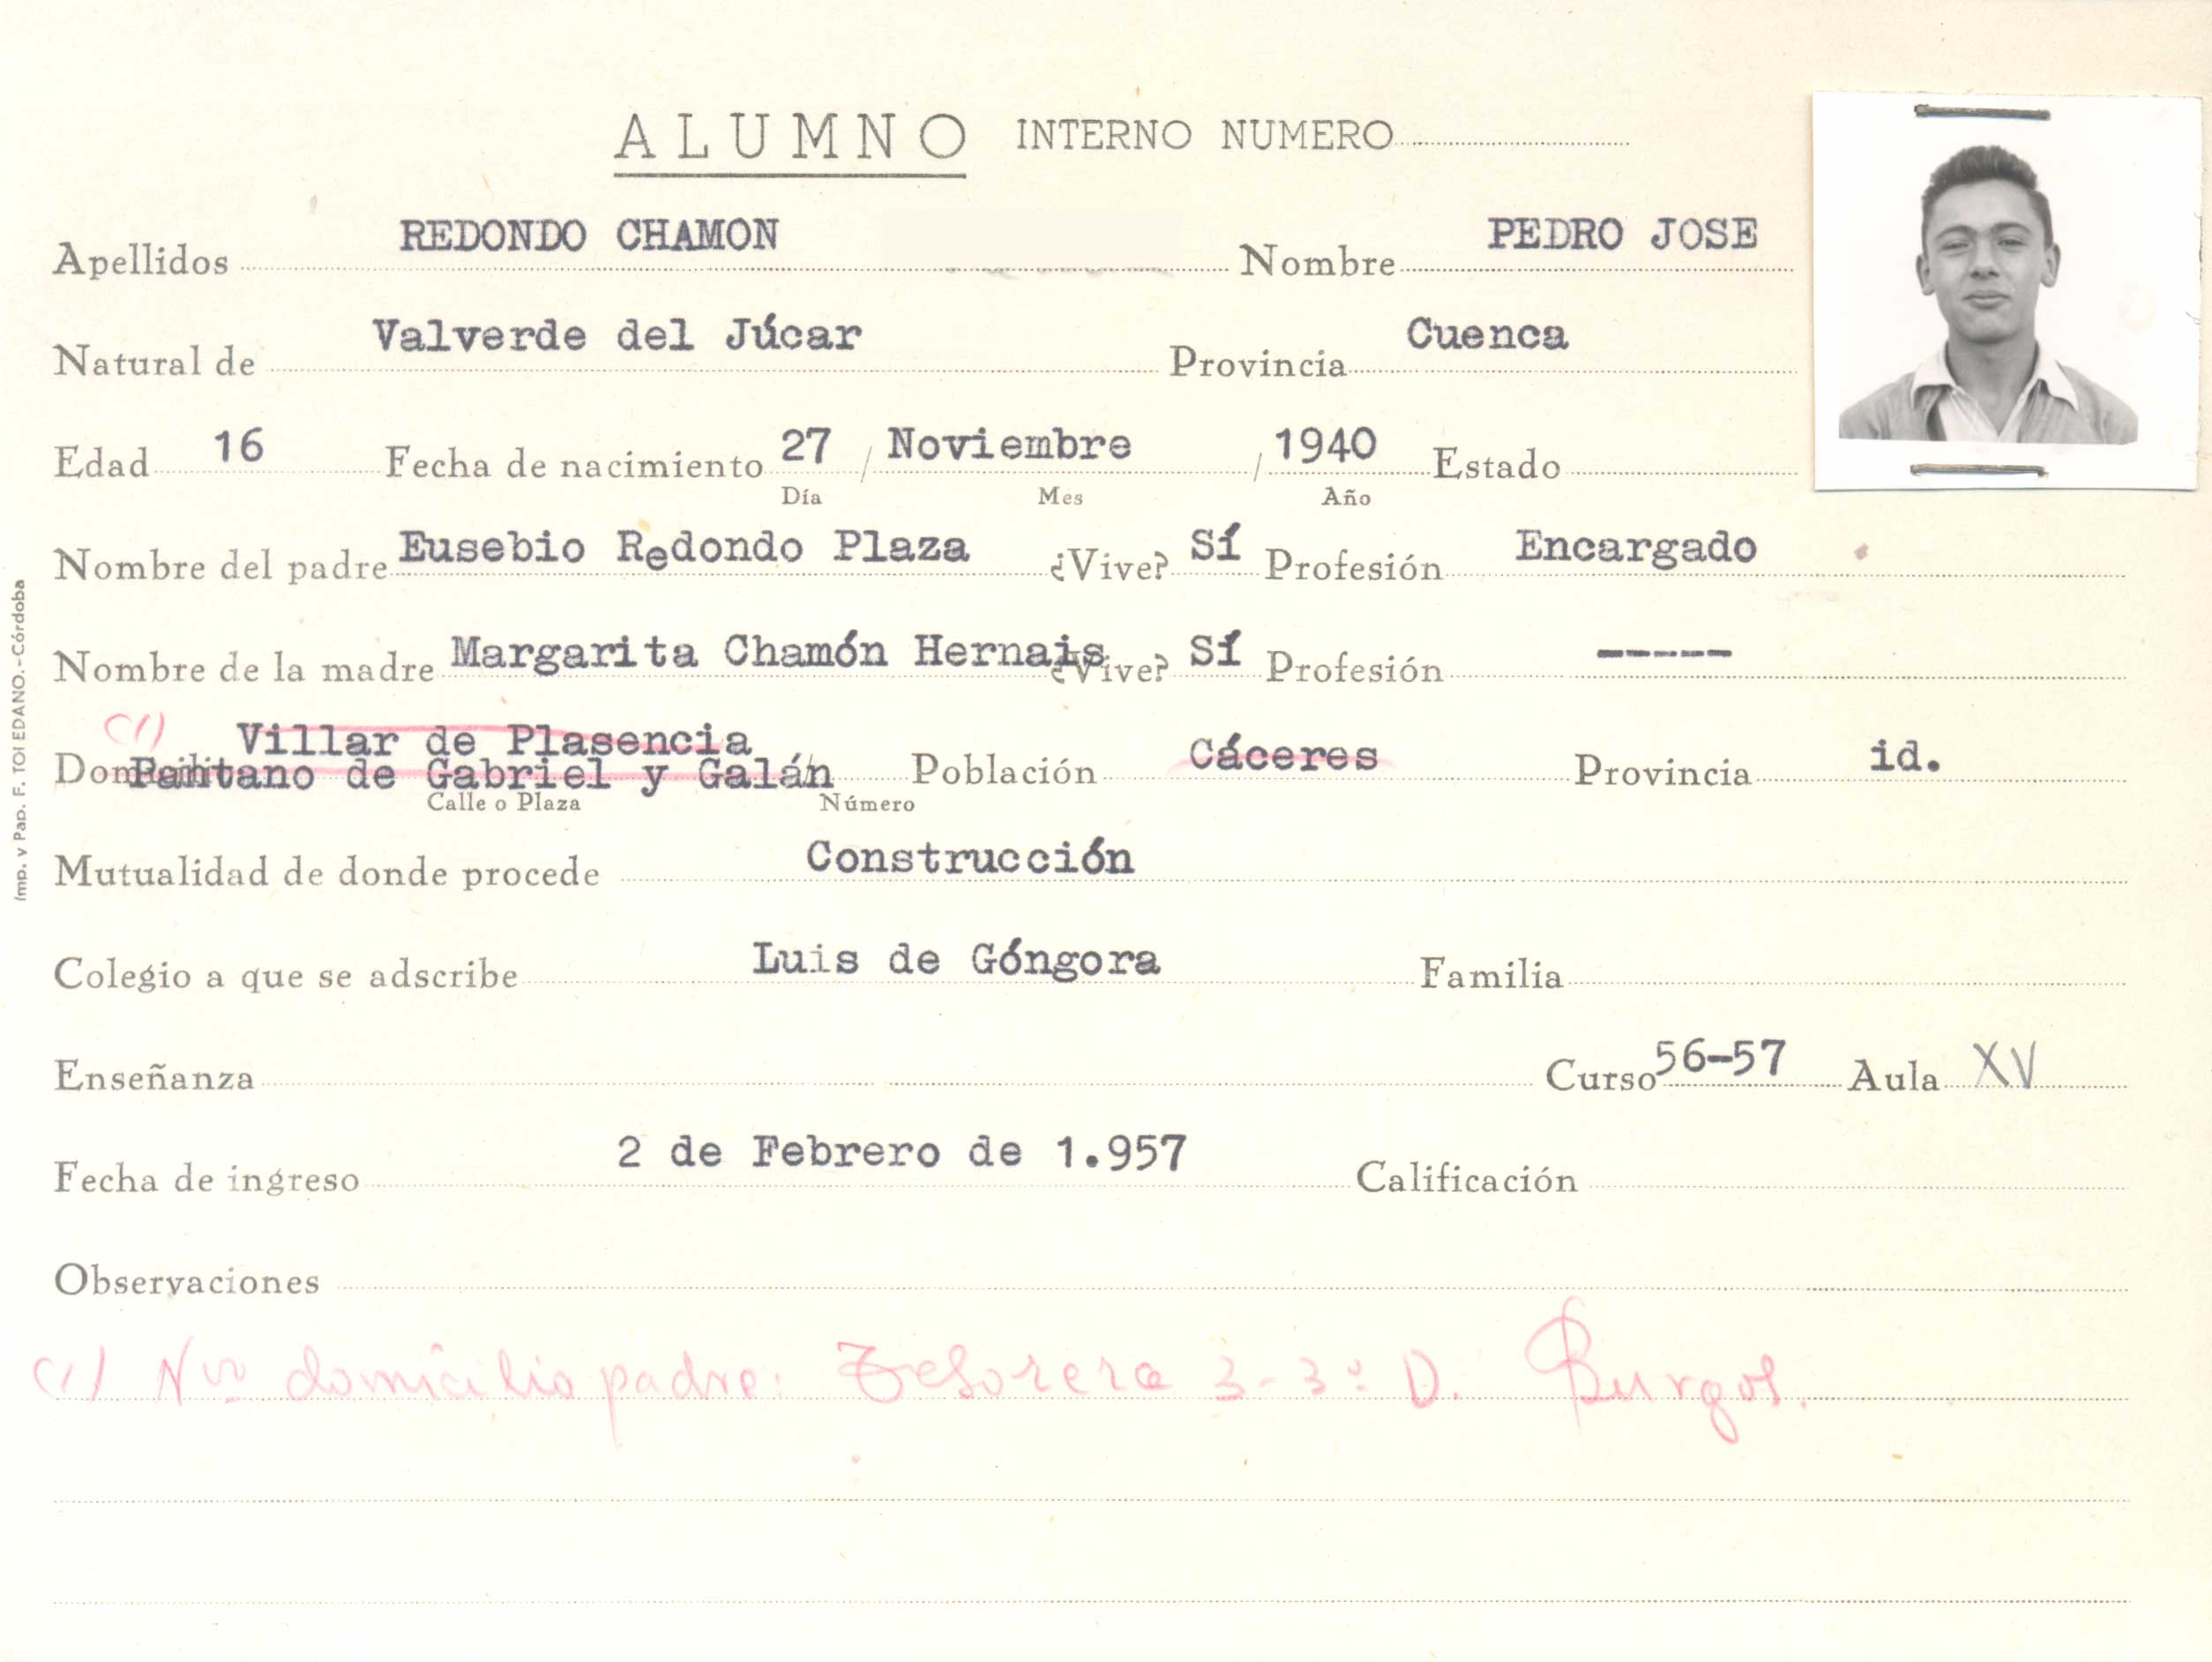 ALUMNO INTERNO NUMERO
Apellidos REDONDO CHAMON Nombre PEDRO JOSE
Natural de Valverde del Júcar Provincia Cuenca
Edad 16 Fecha de nacimiento 27 / Noviembre / 1940 Estado
Día Mes Año
Nombre del padre Eusebio Redondo Plaza ¿Vive? Sí Profesión Encargado
Nombre de la madre Margarita Chamón Hernais ¿Vive? Sí Profesión -----
(1) Villar de Plasencia
Domicilio Pantano de Gabriel y Galán Población Cáceres Provincia id.
Calle o Plaza Número
Mutualidad de donde procede Construcción
Colegio a que se adscribe Luis de Góngora Familia
Enseñanza Curso 56-57 Aula XV
Fecha de ingreso 2 de Febrero de 1.957 Calificación
Observaciones
(1) Nvo domicilio padre: Tesorera 3-3º D. Burgos.
Imp. y Pap. F. TOLEDANO.-Córdoba